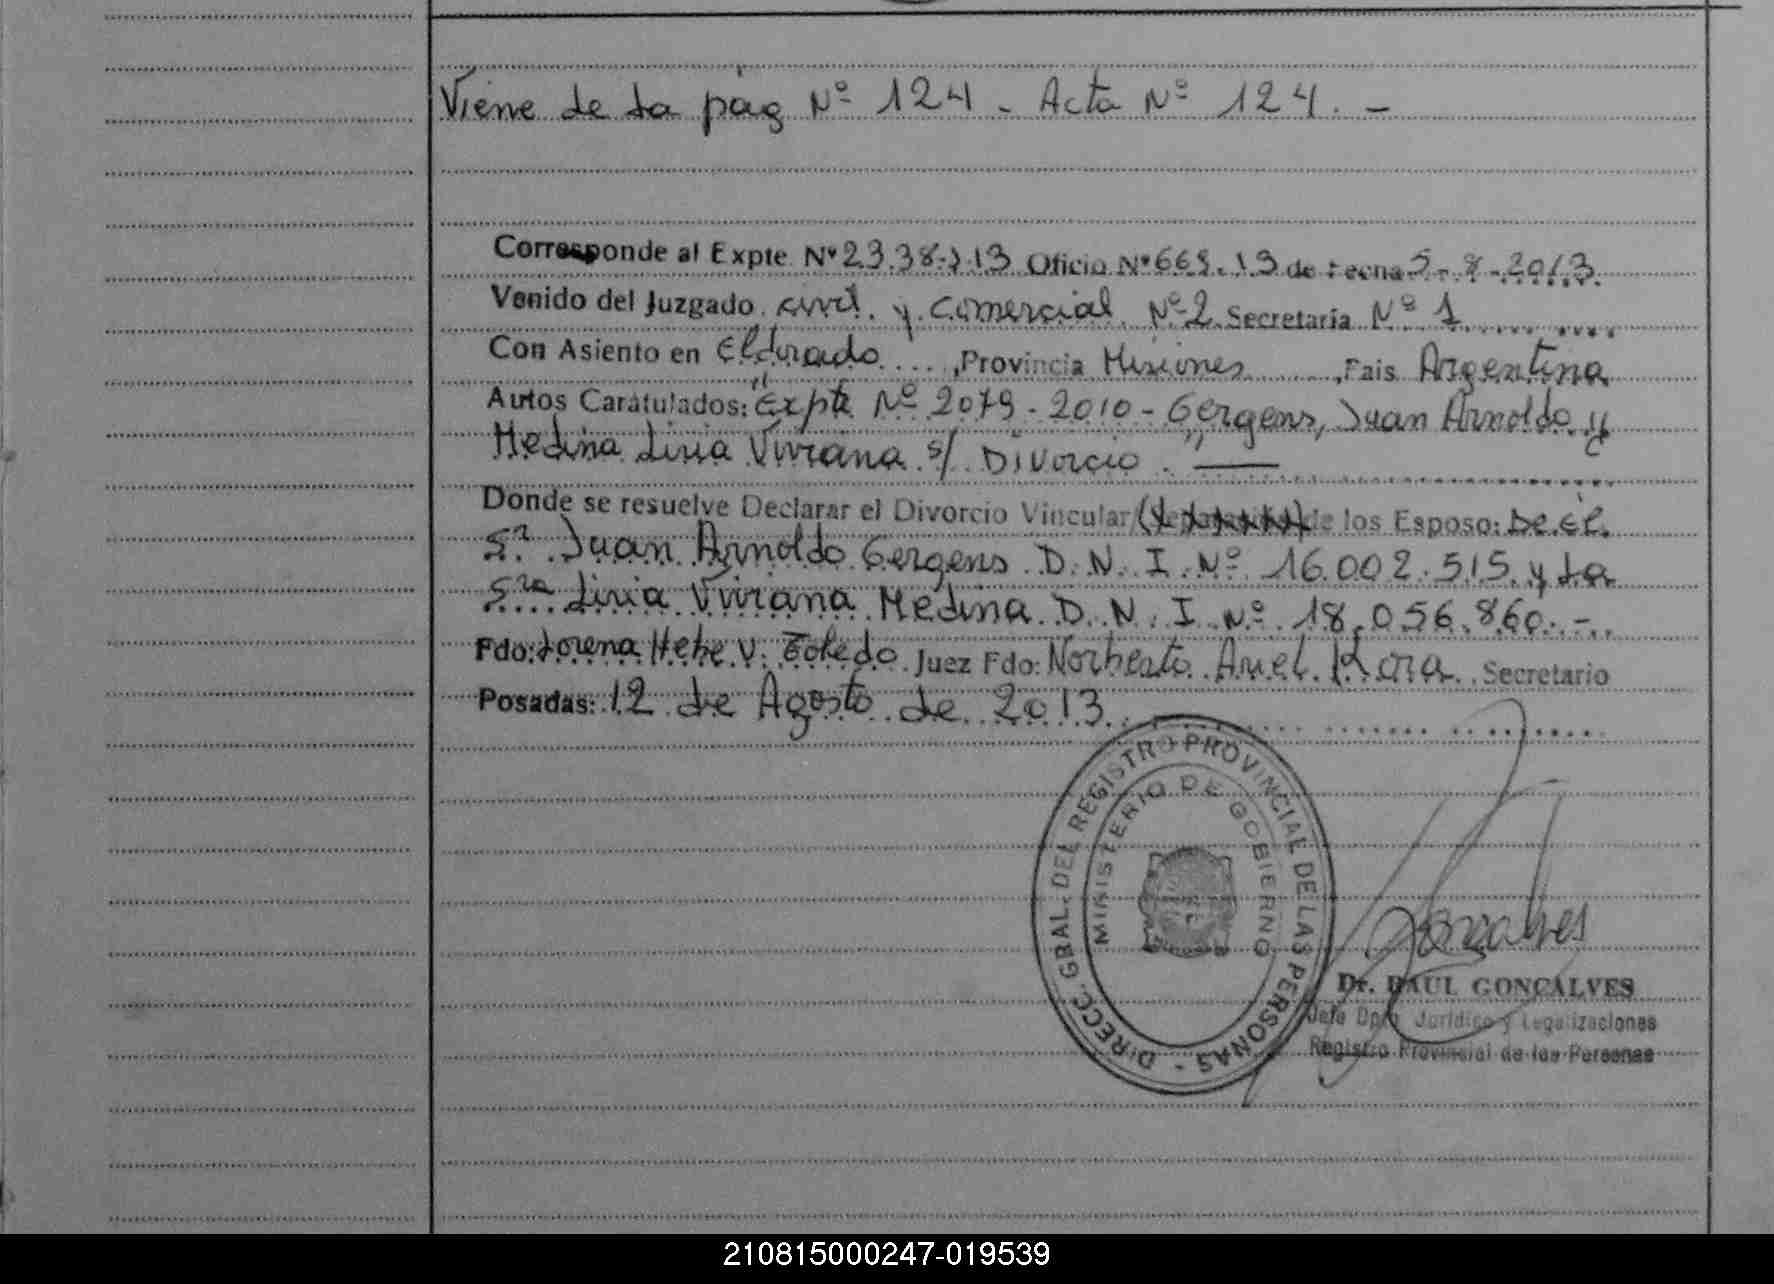 Viene de La pág Nº 124 - Acta Nº 124. -
Corresponde al Expte Nº 23.38-J-13 Oficio Nº 669.13 de fecha 5-8-2013
Venido del Juzgado civil y Comercial Nº 2 Secretaría Nº 1
Con Asiento en Eldorado ...., Provincia Misiones ........, Pais Argentina
Autos Caratulados: "Expte Nº 2079-2010- Gergens, Juan Arnoldo y
Medina Liria Viviana s/ Divorcio." —
Donde se resuelve Declarar el Divorcio Vincular/ de los Esposo: De. El.
Sr. Juan Arnoldo Gergens D.N.I. Nº 16.002.515 y La
Sra Liria Viviana Medina D.N.I. Nº 18.056.860.-
Fdo: Lorena Hebe V. Toledo Juez Fdo: Norberto Ariel Kora Secretario
Posadas: 12 de Agosto de 2013
DIRECC. GRAL. DEL REGISTRO PROVINCIAL DE LAS PERSONAS -
MINISTERIO DE GOBIERNO
Goncalves
Dr. RAUL GONCALVES
Jefe Dpto. Jurídico y Legalizaciones
Registro Provincial de las Personas
210815000247-019539